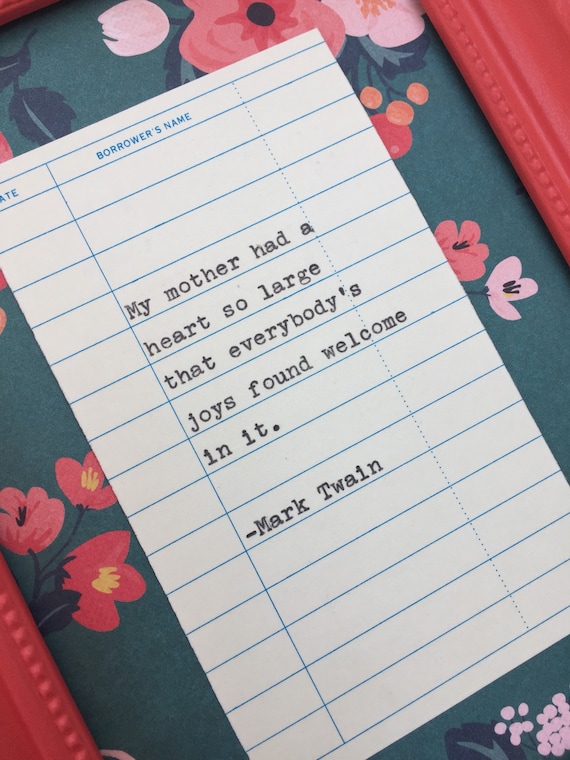 ATE BORROWER'S NAME
My mother had a
heart so large
that everybody's
joys found welcome
in it.
-Mark Twain